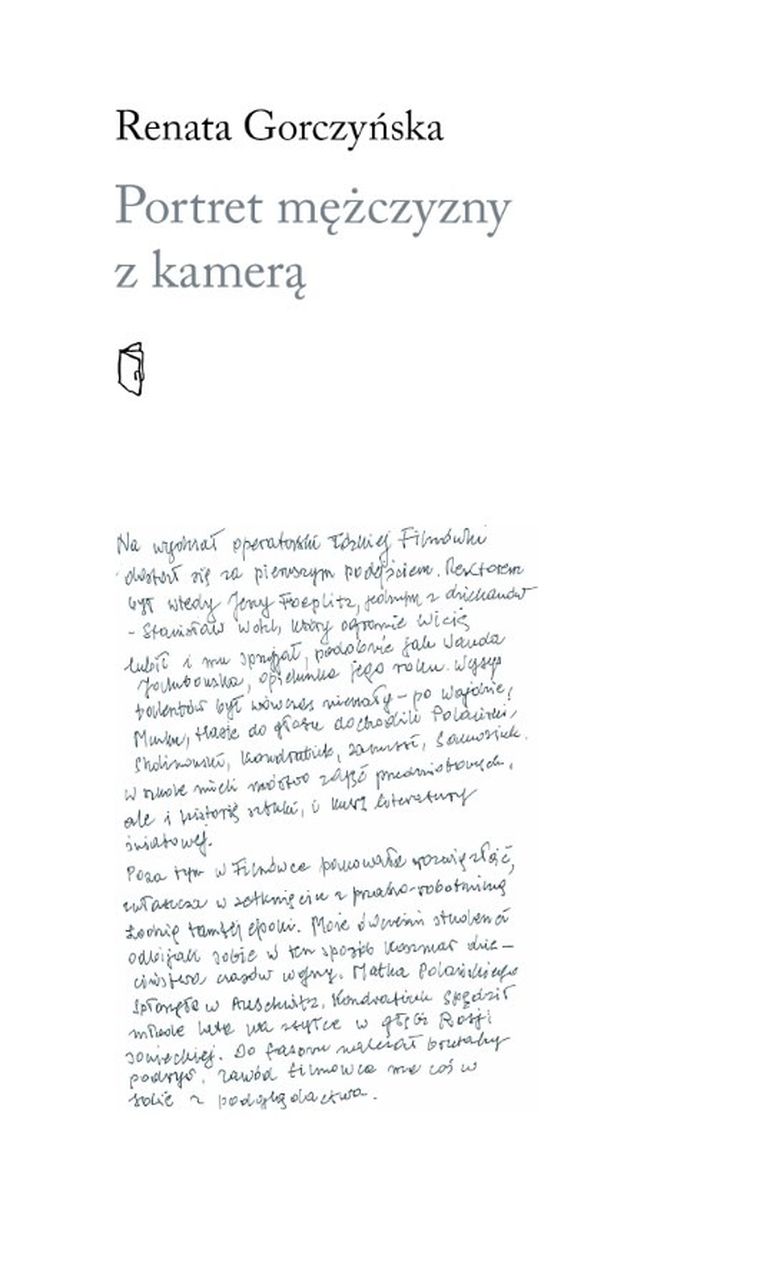 Renata Gorczyńska
Portret mężczyzny
z kamerą
Na wydział operatorski łódzkiej Filmówki
dostał się za pierwszym podejściem. Rektorem
był wtedy Jerzy Toeplitz, jednym z dziekanów
- Stanisław Wohl, który ogromnie Wicię
lubił i mu sprzyjał, podobnie jak Wanda
Jakubowska, opiekunka jego roku. Wysyp
talentów był wówczas niemały – po Wajdzie,
Munku, także do głosu dochodzili Polański,
Skolimowski, Kondratiuk, Zanussi, Samosiuk.
W szkole mieli mnóstwo zajęć przedmiotowych,
ale i historię sztuki, i kurs literatury
światowej.
Poza tym w Filmówce panowała rozwięzłość,
zwłaszcza w zetknięciu z prząśno-robotniczą
Łodzią tamtej epoki. Może ówcześni studenci
odbijali sobie w ten sposób koszmar dzie-
ciństwa czasów wojny. Matka Polańskiego
spłonęła w Auschwitz, Kondratiuk spędził
młode lata na zsyłce w głębi Rosji
sowieckiej. Do fasonu należał brutalny
podryw. Zawód filmowca ma coś w
sobie z podglądactwa.